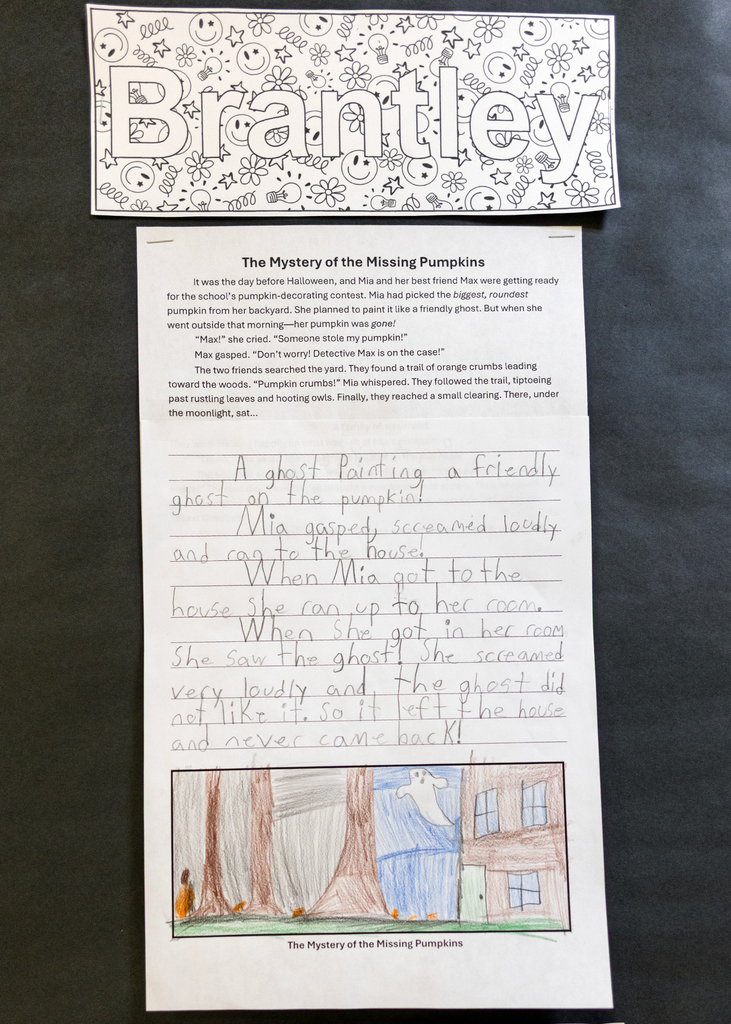 Brantley
The Mystery of the Missing Pumpkins
It was the day before Halloween, and Mia and her best friend Max were getting ready
for the school's pumpkin-decorating contest. Mia had picked the biggest, roundest
pumpkin from her backyard. She planned to paint it like a friendly ghost. But when she
went outside that morning—her pumpkin was gone!
"Max!" she cried. "Someone stole my pumpkin!"
Max gasped. "Don't worry! Detective Max is on the case!"
The two friends searched the yard. They found a trail of orange crumbs leading
toward the woods. "Pumpkin crumbs!" Mia whispered. They followed the trail, tiptoeing
past rustling leaves and hooting owls. Finally, they reached a small clearing. There, under
the moonlight, sat...
A ghost Painting a friendly
ghost on the pumpkin!
Mia gasped, screamed loudly
and ran to the house.
When Mia got to the
house She ran up to her room.
When She got in her room
She saw the ghost! She screamed
very loudly and the ghost did
not like it. So it left the house
and never came back!
The Mystery of the Missing Pumpkins